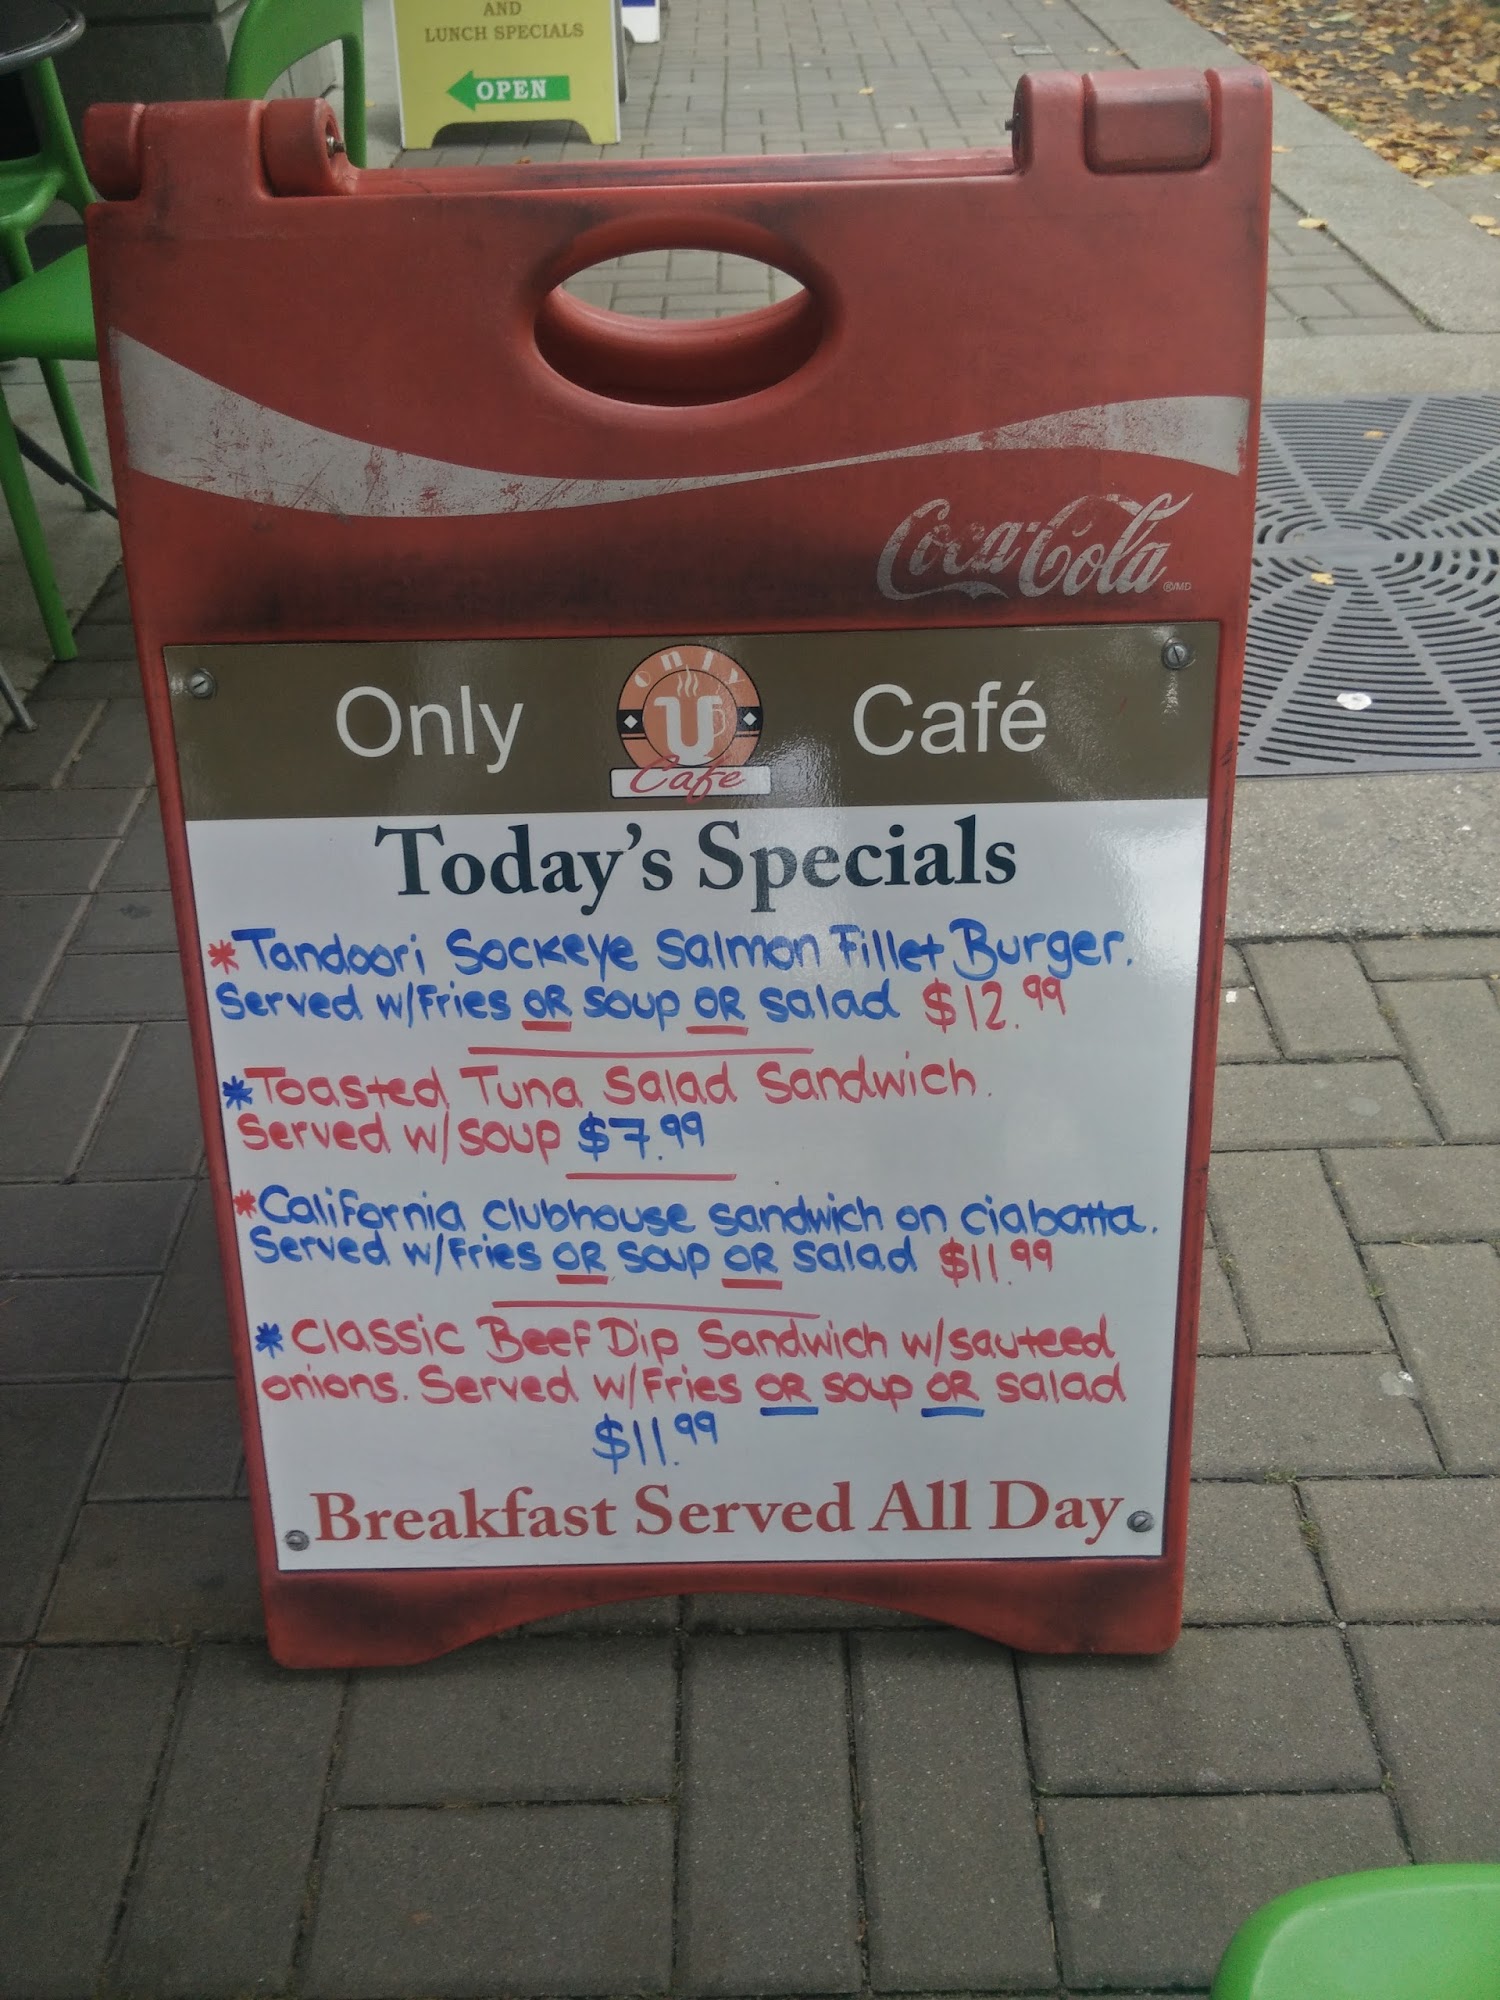 AND
LUNCH SPECIALS
OPEN
Coca-Cola
®/MD
Only U Café
Only
Cafe
Today's Specials
*Tandoori Sockeye Salmon Fillet Burger.
Served w/Fries OR soup OR salad $12.99
*Toasted Tuna Salad Sandwich.
Served w/soup $7.99
*California clubhouse sandwich on ciabatta.
Served w/Fries OR soup OR salad $11.99
*Classic Beef Dip Sandwich w/sauteed
onions. Served w/Fries OR soup OR salad
$11.99
Breakfast Served All Day